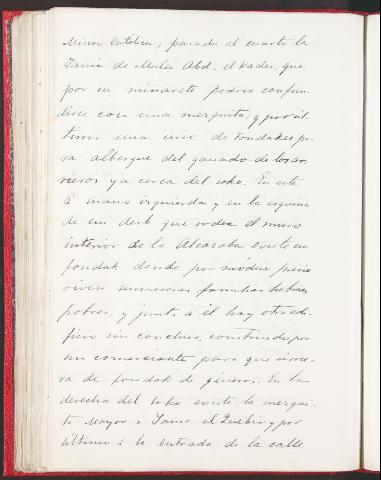 Misión Católica; pasado el cuarto la
Zauia de Mulei Abd-el-Kader, que
por su minarete podría confun-
dirse con una mezquita, y por úl-
timo una serie de fondakes pa-
ra albergue del ganado de los ar-
rieros ya cerca del soko. En este
á mano izquierda y en la esquina
de un derb que rodea el muro
interior de la Alcazaba existe un
fondak donde por módico precio
viven numerosas familias hebreas
pobres, y junto á él hay otro edi-
ficio sin concluir, construido por
un comerciante para que sirvie-
ra de fondak de géneros. En la
derecha del soko existe la mezqui-
ta Mayor ó Yamâ el Quebir y por
último á la entrada de la calle